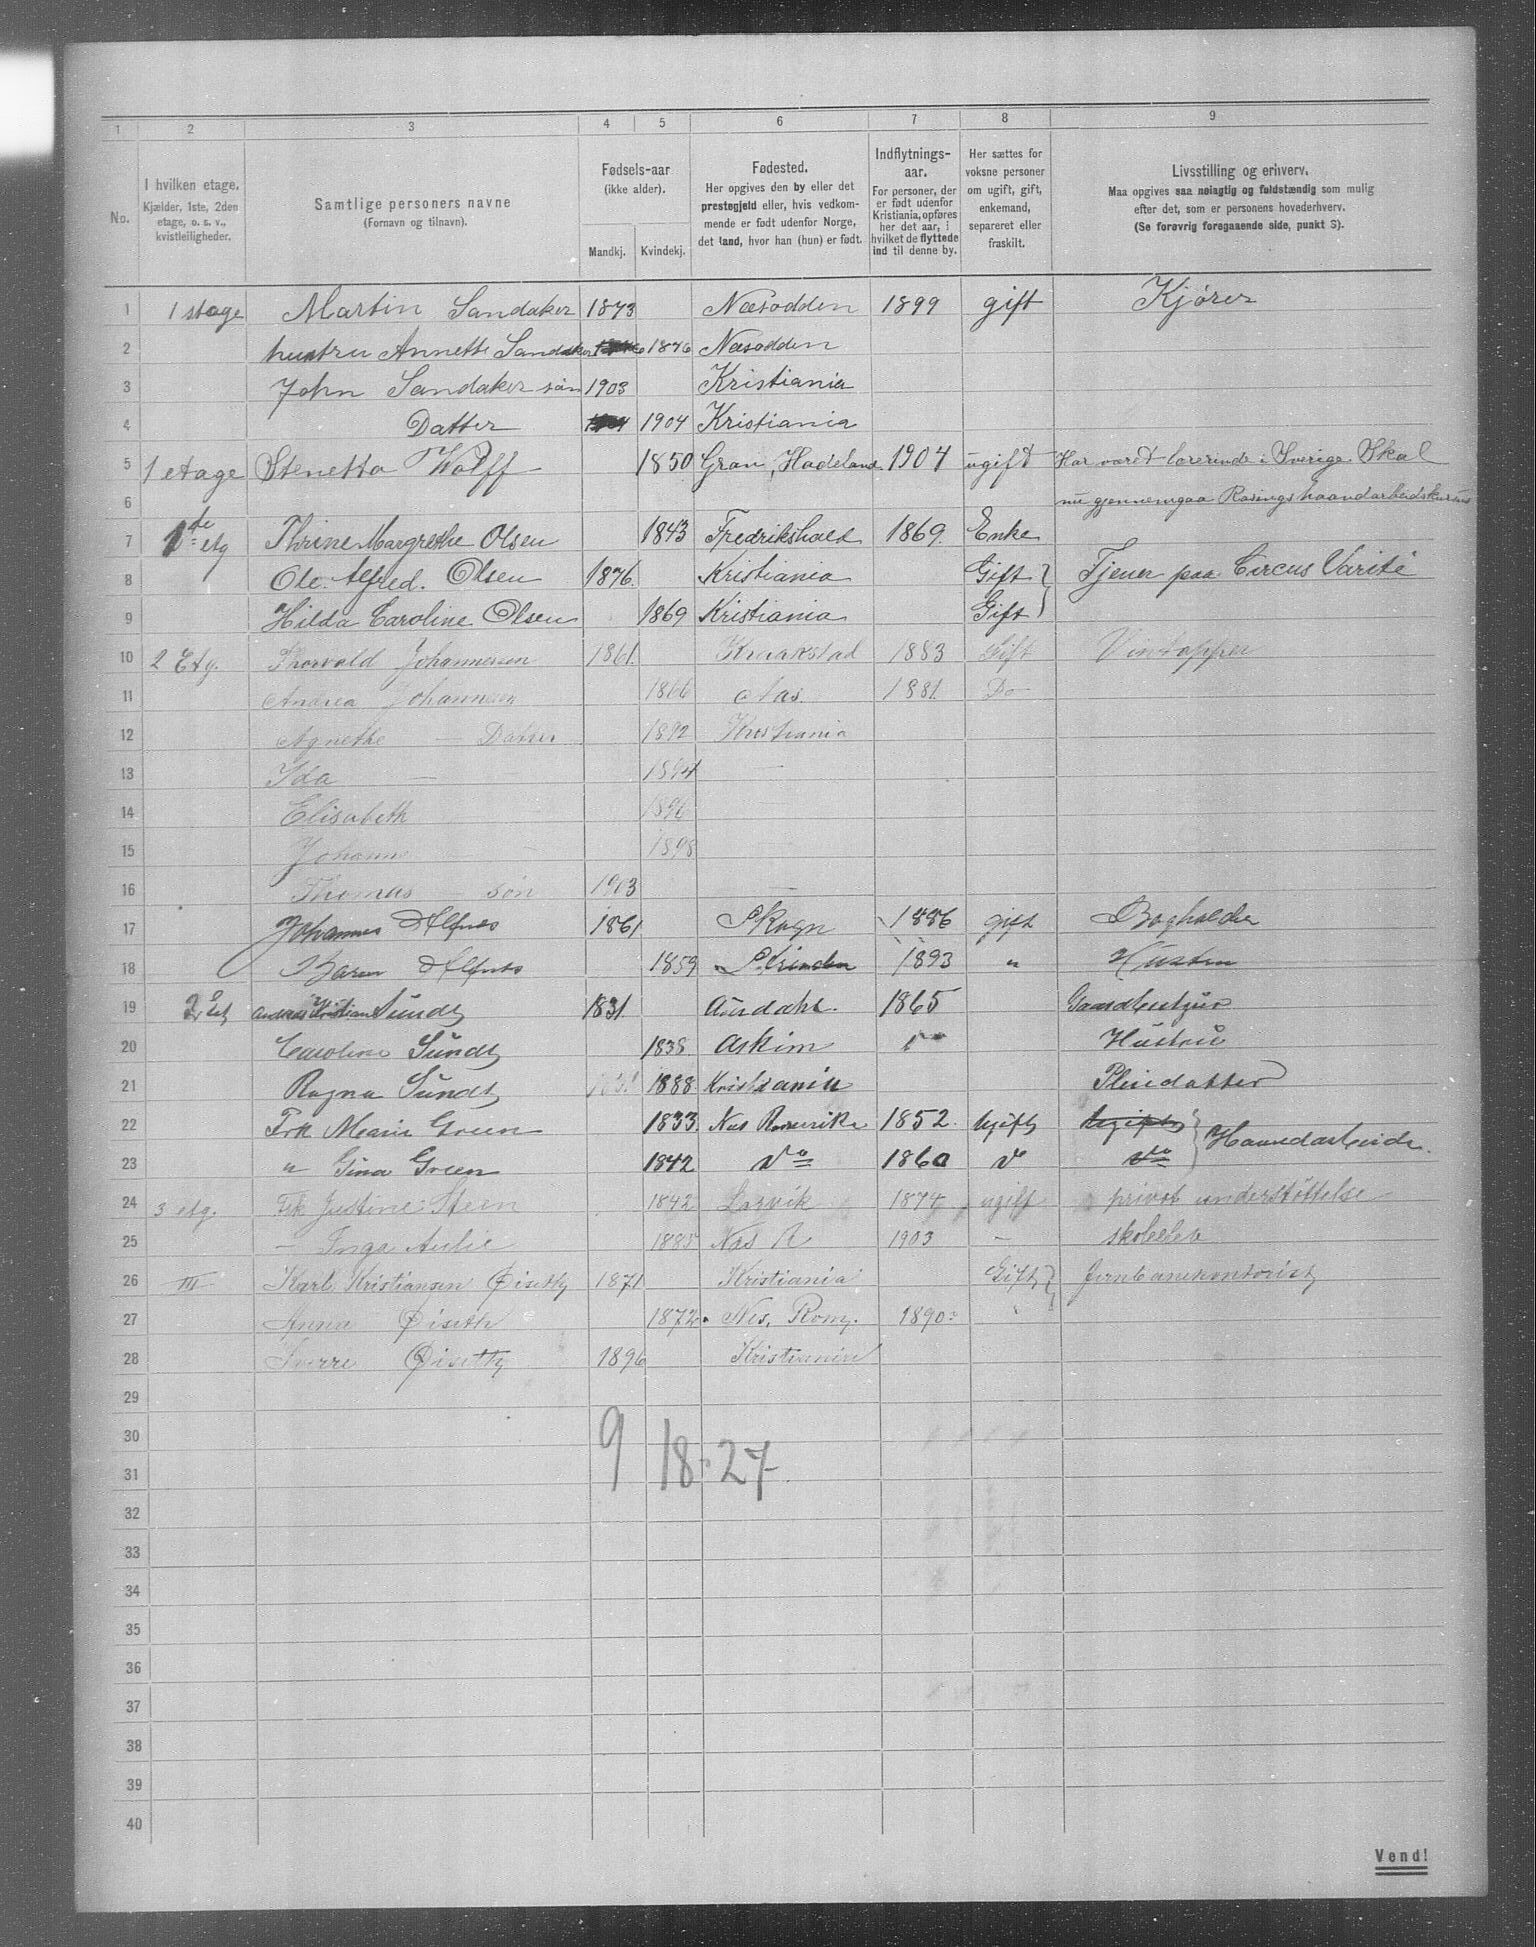 1 2 3 4 5 6 7 8 9
No.
I hvilken etage.
Kjælder, 1ste, 2den
etage, o. s. v.,
kvistleiligheder.
Samtlige personers navne
(Fornavn og tilnavn).
Fødsels-aar
(ikke alder).
Mandkj. Kvindekj.
Fødested.
Her opgives den by eller det
prestegjeld eller, hvis vedkom-
mende er født udenfor Norge,
det land, hvor han (hun) er født.
Indflytnings-
aar.
For personer, der
er født udenfor
Kristiania, opføres
her det aar, i
hvilket de flyttede
ind til denne by.
Her sættes for
voksne personer
om ugift, gift,
enkemand,
separeret eller
fraskilt.
Livsstilling og erhverv.
Maa opgives saa nøiagtig og fuldstændig som mulig
efter det, som er personens hovederhverv.
(Se forøvrig foregaaende side, punkt S).
1 1 etage Martin Sandaker 1873 Næsodden 1899 gift Kjører
2 hustru Annette Sandaker 1876 Næsodden
3 John Sandaker søn 1903 Kristiania
4 Datter 1904 Kristiania
5 1 etage Stenetta Wolff 1850 Gran, Hadeland 1904 ugift Har været lærerinde i Sverige. Skal
6 nu gjennemgaa Rosings haandarbeidskursus
7 1te etg Thrine Margrethe Olsen 1843 Fredrikshald 1869. Enke
8 Ole. Alfred. Olsen 1876. Kristiania Gift } Tjener paa Circus Varité
9 Hilda Caroline Olsen 1869 Kristiania Gift
10 2 Etg. Thorvald Johannessen 1861. Kraakstad 1883 Gift Vintapper
11 Andrea Johannesen 1866 Aas. 1881. Do
12 Agnethe — Datter 1892 Kristiania
13 Ida — 1894 —
14 Elisabeth 1896
15 Johanne — 1898
16 Thomas — søn 1903 —
17 Johannes Alfnes 1861 Skogn 1886 gift Bogholder
18 Alfnes 1859 Strinden 1893 " Hustru
19 2 Etg Andreas Kristian Sundt 1831. 1865
20 Caroline Sundt 1838. Askim Hustru
21 Ragna Sundt 1888. Kristiania Pleiedatter
22 Frk Marie Green 1833. Næs Romerike 1852. Ugift Ugift } Haandarbeide.
23 " Gina Green 1842 Do 1860 Do Do
24 3 etg. Frk Justine Steen 1842 Larvik 1874 ugift privat understøttelse
25 — Inga Aulie 1885 Næs R 1903 — skoleelev
26 III Karl Kristiansen Øiseth 1871 Kristiania Gift } Jernbanekontorist
27 Anna Øiseth 1872. Nes, Rom. 1890.
28 Sverre Øiseth 1896 Kristiania
29
30
31 9 18 27
32
33
34
35
36
37
38
39
40
Vend!